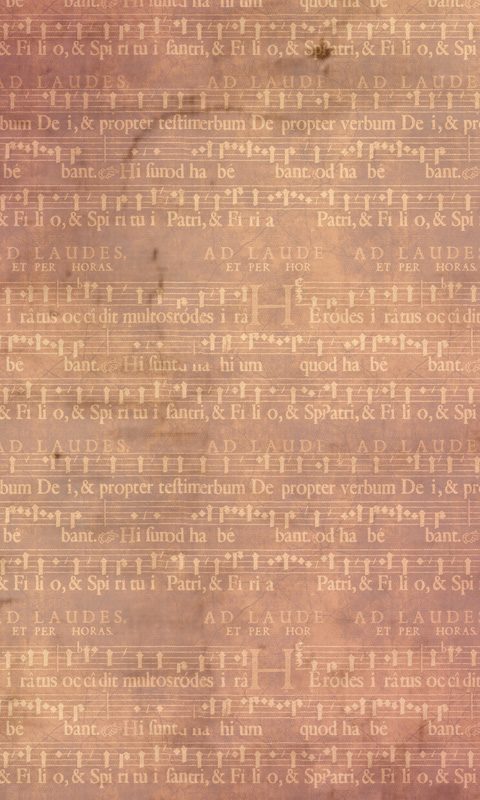 bé bant. hi um quod ha bé
& Fi li o, & Spi ri tu i sanṫri, & Fi li o, & SpPatri, & Fi li o, & Spi
AD LAUDES, AD LAUDE AD LAUDES,
bum De i, & propter testimerbum De propter verbum De i, & pro
bé bant. Hi funod ha bé bant. od ha bé bant.
& Fi li o, & Spi ri tu i Patri, & Fi ri a Patri, & Fi li o, & Spi
AD LAUDES, AD LAUDE AD LAUDES,
ET PER HORAS. ET PER HOR ET PER HORAS.
i ratus occidit multosródes i râ H Eródes i ratus occidit
bé bant. Hi sunt hi um quod ha bé bant.
& Fi li o, & Spi ri tu i santri, & Fi li o, & SpPatri, & Fi li o, & Spi
AD LAUDES, AD LAUDE AD LAUDES,
bum De i, & propter testimerbum De propter verbum De i, & pro
bé bant. Hi funod ha bé bant. od ha bé bant.
& Fi li o, & Spi ri tu i Patri, & Fi ri a Patri, & Fi li o, & Spi
AD LAUDES, AD LAUDE AD LAUDES,
ET PER HORAS. ET PER HOR ET PER HORAS.
i ratus occidit multosródes i râ H Eródes i ratus occidit
bé bant. Hi sunt hi um quod ha bé bant.
& Fi li o, & Spi ri tu i santri, & Fi li o, & SpPatri, & Fi li o, & Spi